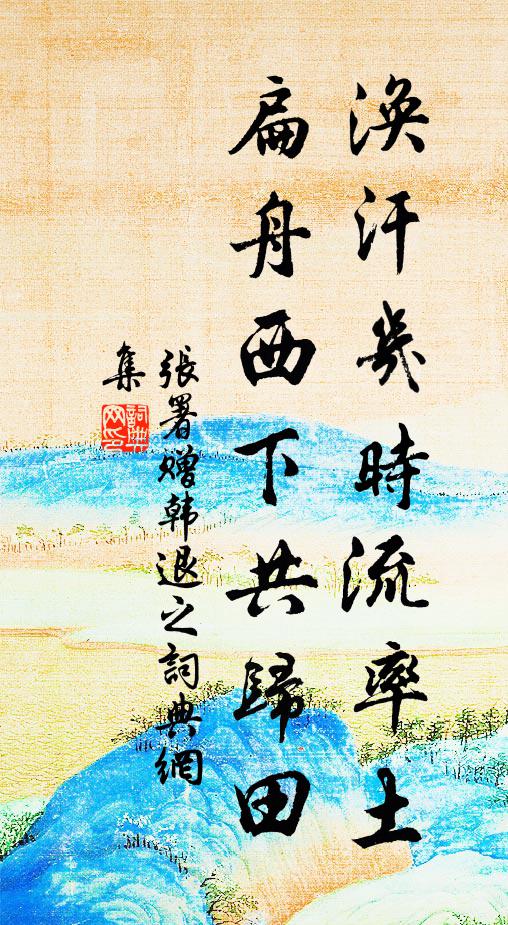 渙汗幾時流率土
扁舟西下共歸田
張署贈韓退之詞典網
集
詞典網印